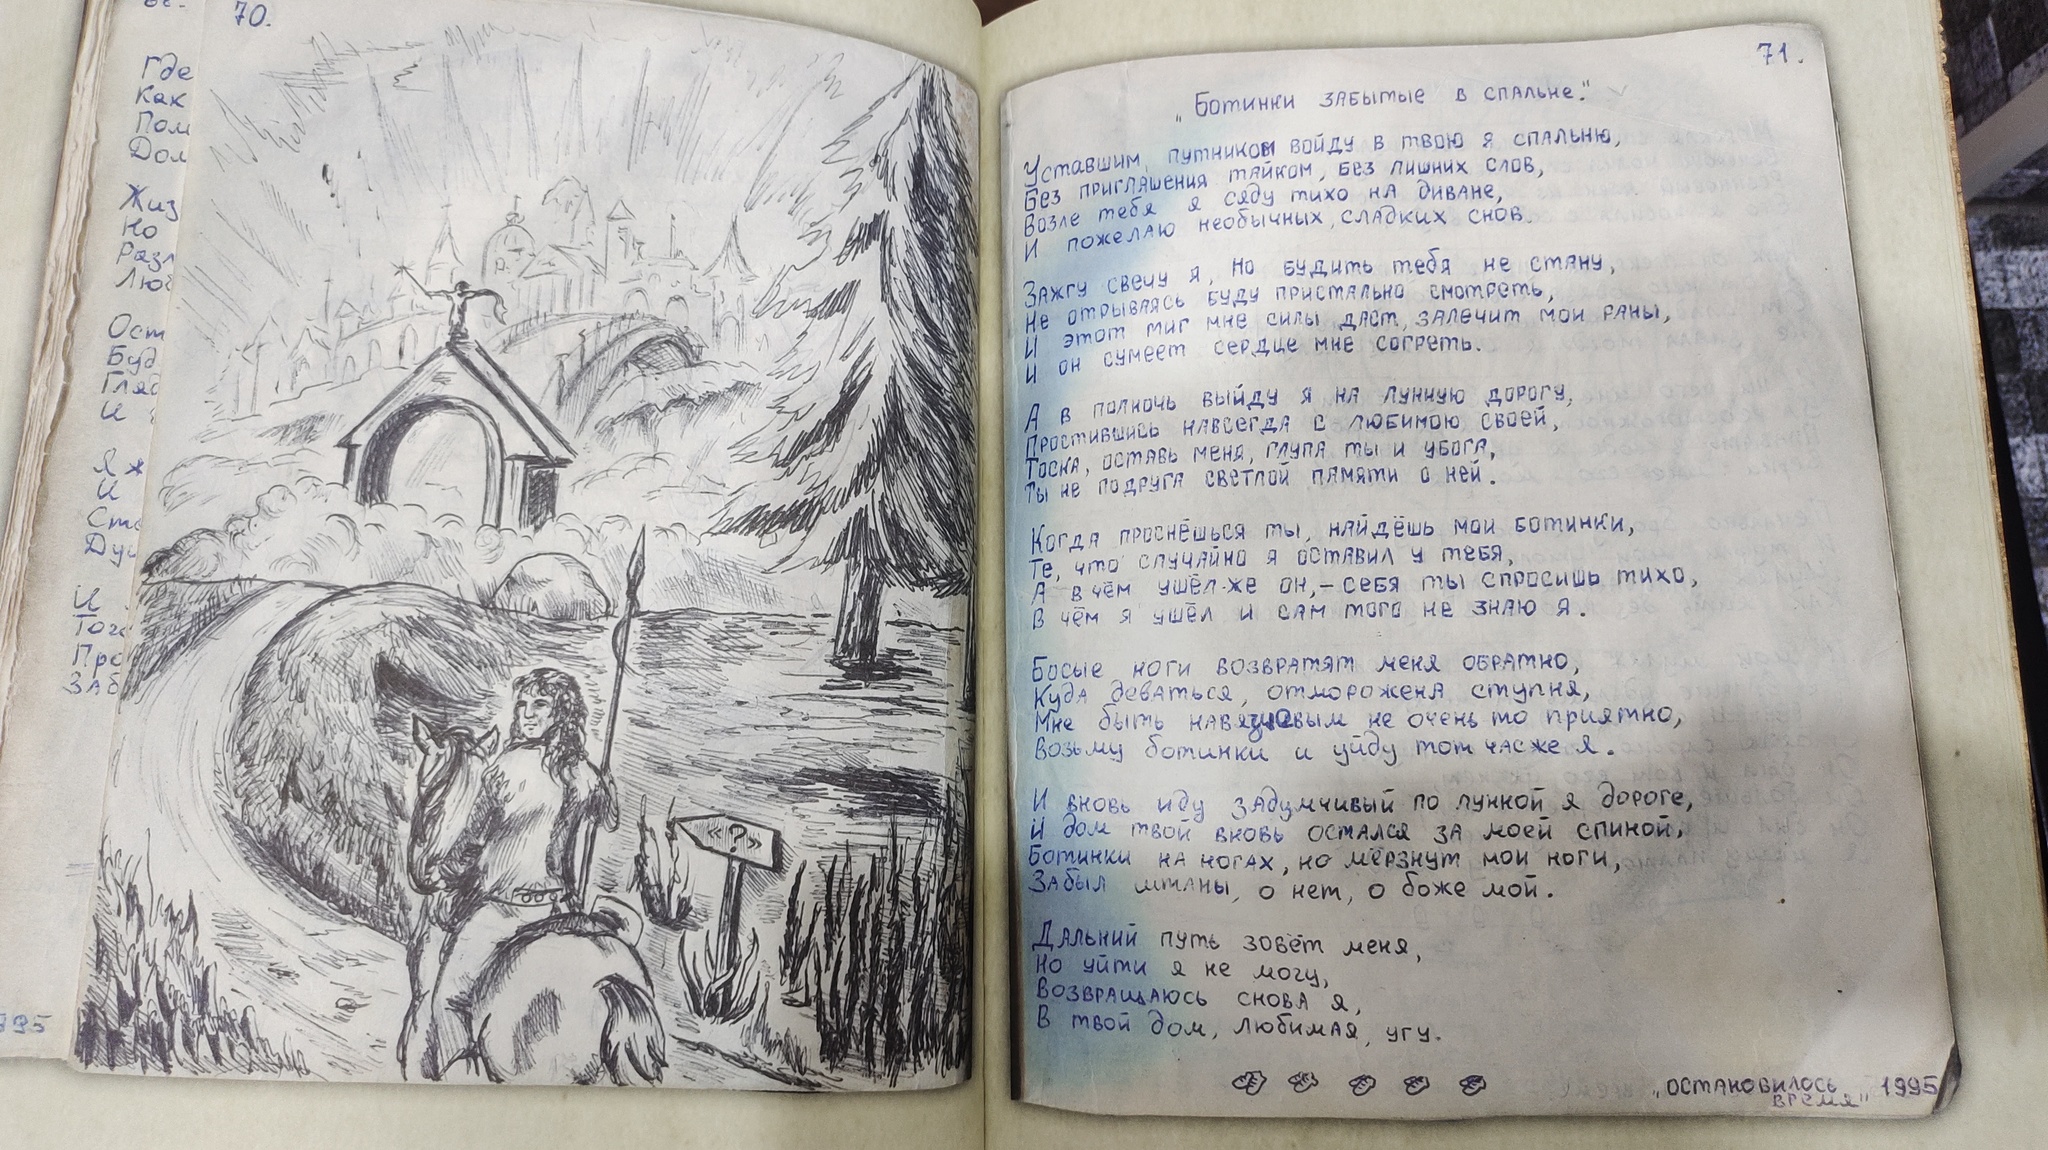 70.
Где
Как
Пом
Дом
Жиз
Но
Разл
Люб
Ост
Буд
Гляд
И
Я ж
И
Ст
Душ
И
Того
Про
Заб
995
«?»
71.
„Ботинки забытые в спальне."
Уставшим, путником войду в твою я спальню,
Без приглашения тайком, без лишних слов,
Возле тебя я сяду тихо на диване,
И пожелаю необычных, сладких снов.
Зажгу свечу я, но будить тебя не стану,
Не отрываясь буду пристально смотреть,
И этот миг мне силы даст, залечит мои раны,
И он сумеет сердце мне согреть.
А в полночь выйду я на лунную дорогу,
Простившись навсегда с любимою своей,
Тоска, оставь меня, глупа ты и убога,
Ты не подруга светлой памяти о ней.
Когда проснёшься ты, найдёшь мои ботинки,
Те, что случайно я оставил у тебя,
А в чём ушёл-же он, – себя ты спросишь тихо,
В чём я ушёл и сам того не знаю я.
Босые ноги возвратят меня обратно,
Куда деваться, отморожена ступня,
Мне быть навязчивым не очень то приятно,
Возьму ботинки и уйду тот час же я.
И вновь иду задумчивый по лунной я дороге,
И дом твой вновь остался за моей спиной,
Ботинки на ногах, но мёрзнут мои ноги,
Забыл штаны, о нет, о боже мой.
Дальний путь зовёт меня,
Но уйти я не могу,
Возвращаюсь снова я,
В твой дом, любимая, угу.
„Остановилось время" 1995